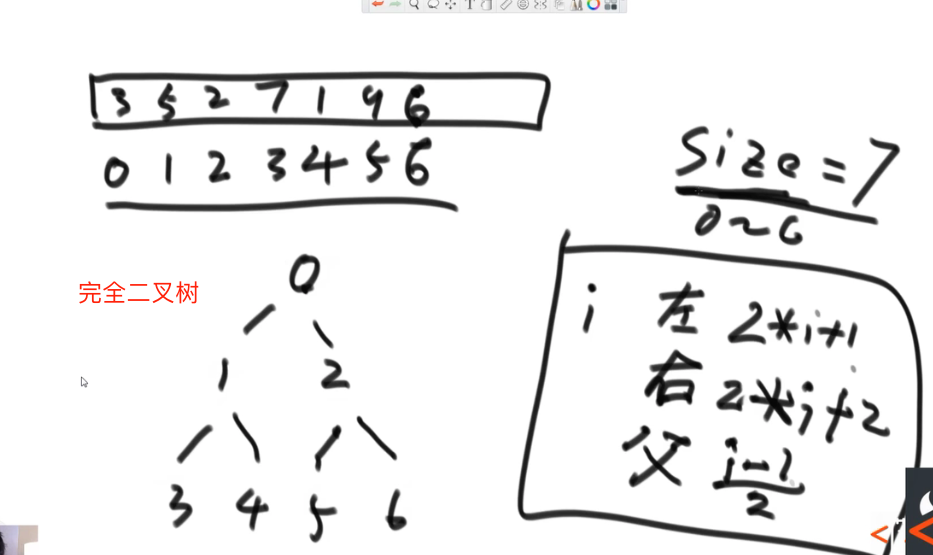 3 5 2 7 1 9 6
0 1 2 3 4 5 6
size=7
0~6
完全二叉树
0
1 2
3 4 5 6
i 左 2*i+1
右 2*i+2
父 i-1
2